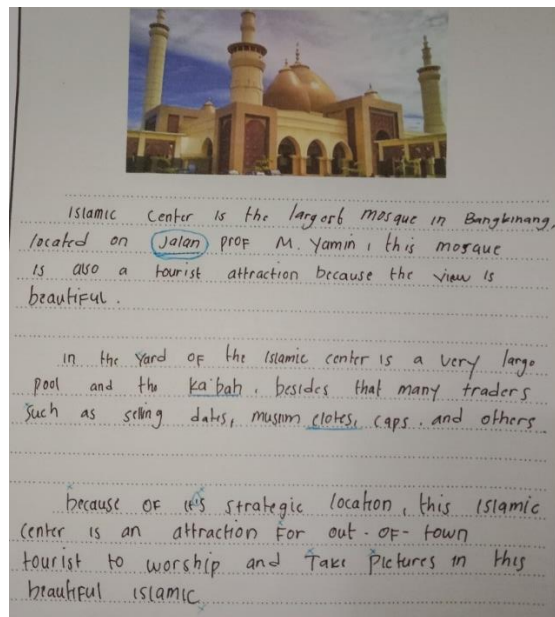 Islamic Center is the largest mosque in Bangkinang,
located on Jalan prof M. Yamin, this mosque
is also a tourist attraction because the view is
beautiful.
in the yard of the Islamic center is a very large
pool and the ka'bah. besides that many traders
such as selling dates, muslim clotes, caps. and others
because of it's strategic location, this Islamic
center is an attraction for out-of-town
tourist to worship and Take Pictures in this
beautiful islamic